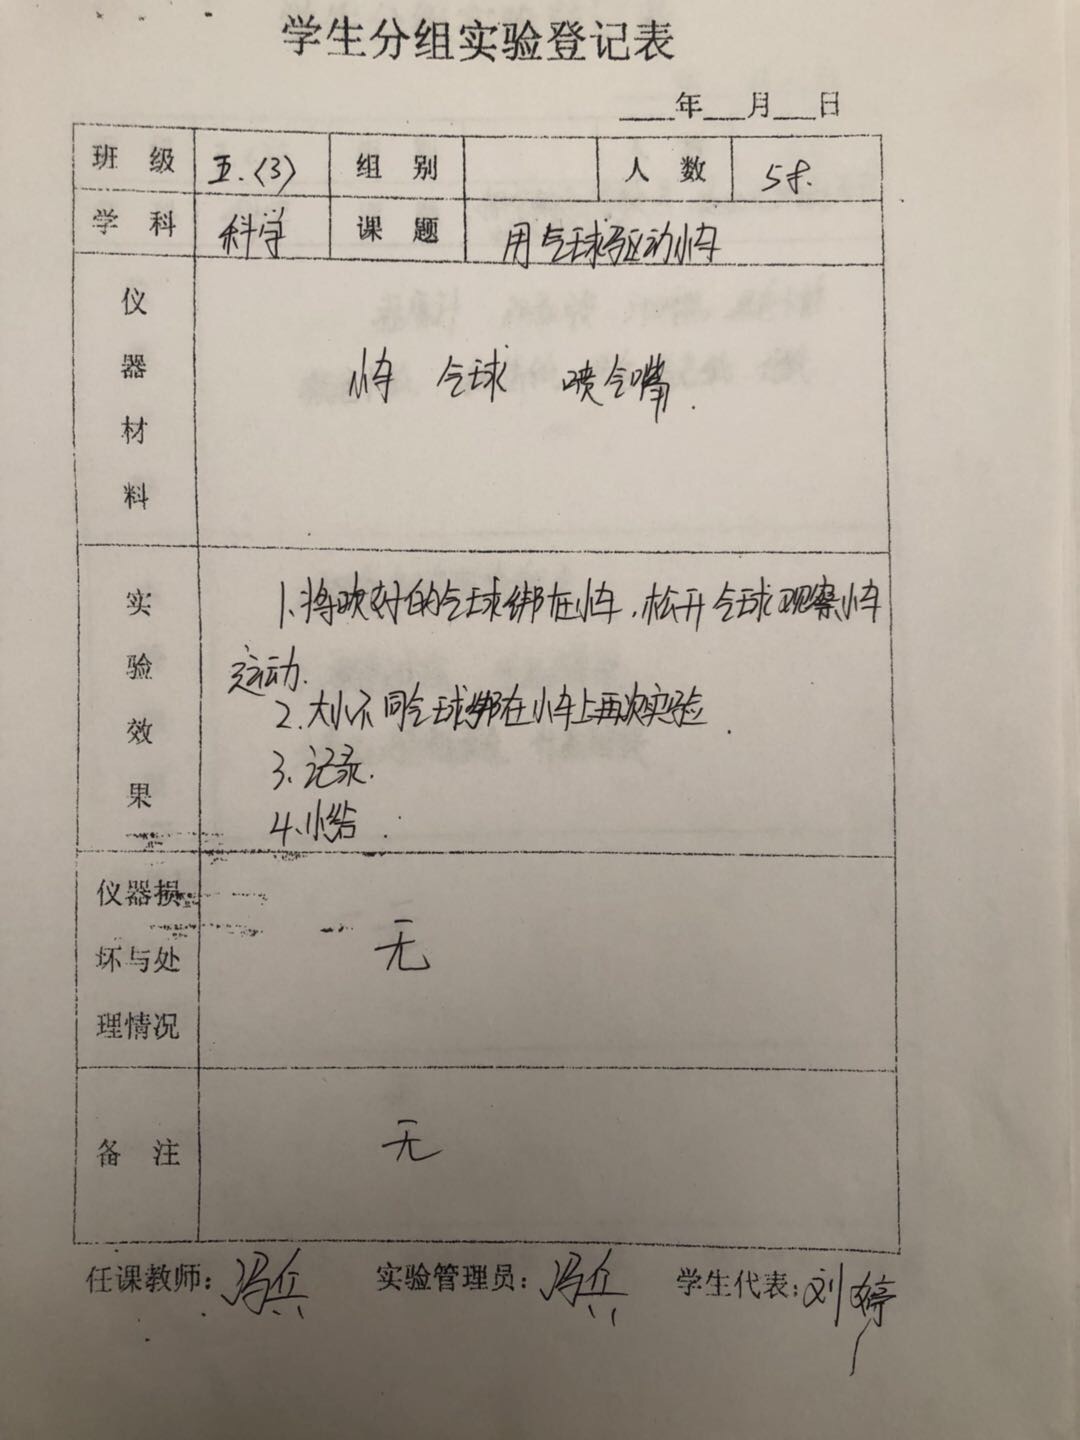 学生分组实验登记表
____年___月___日
班 级 五.(3) 组 别 人 数 58.
学 科 科学 课 题 用气球驱动小车
仪器材料 小车 气球 喷气嘴.
实验效果
1、将吹好的气球绑在小车，松开气球观察小车
运动.
2、大小不同气球绑在小车上再次实验.
3、记录.
4、小结.
仪器损坏与处理情况 无
备 注 无
任课教师：冯兵 实验管理员：冯兵 学生代表：刘婷